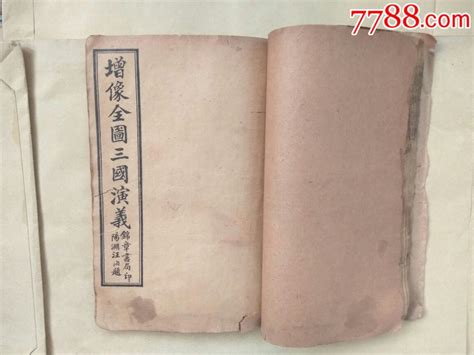 7788.com
增像全圖三國演義
錦章書局印
陽湖汪洵題